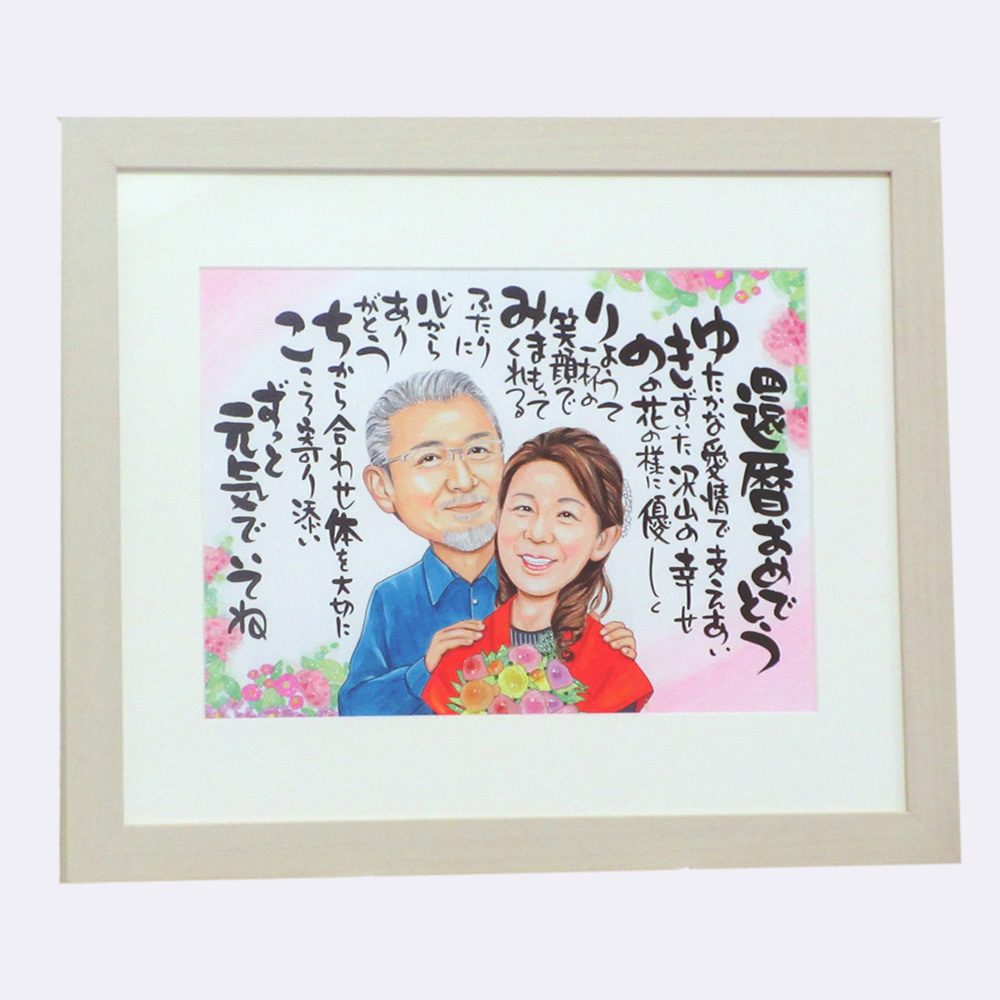 還暦おめでとう
ゆたかな愛情で支えあい
きずいた沢山の幸せ
めの花の様に優しく
りょうて
一杯の
笑顔で
みまもって
くれる
ふたり
に
心から
あり
がとう
ちから合わせ体を大切に
こころ寄り添い
ずっと
元気でいてね